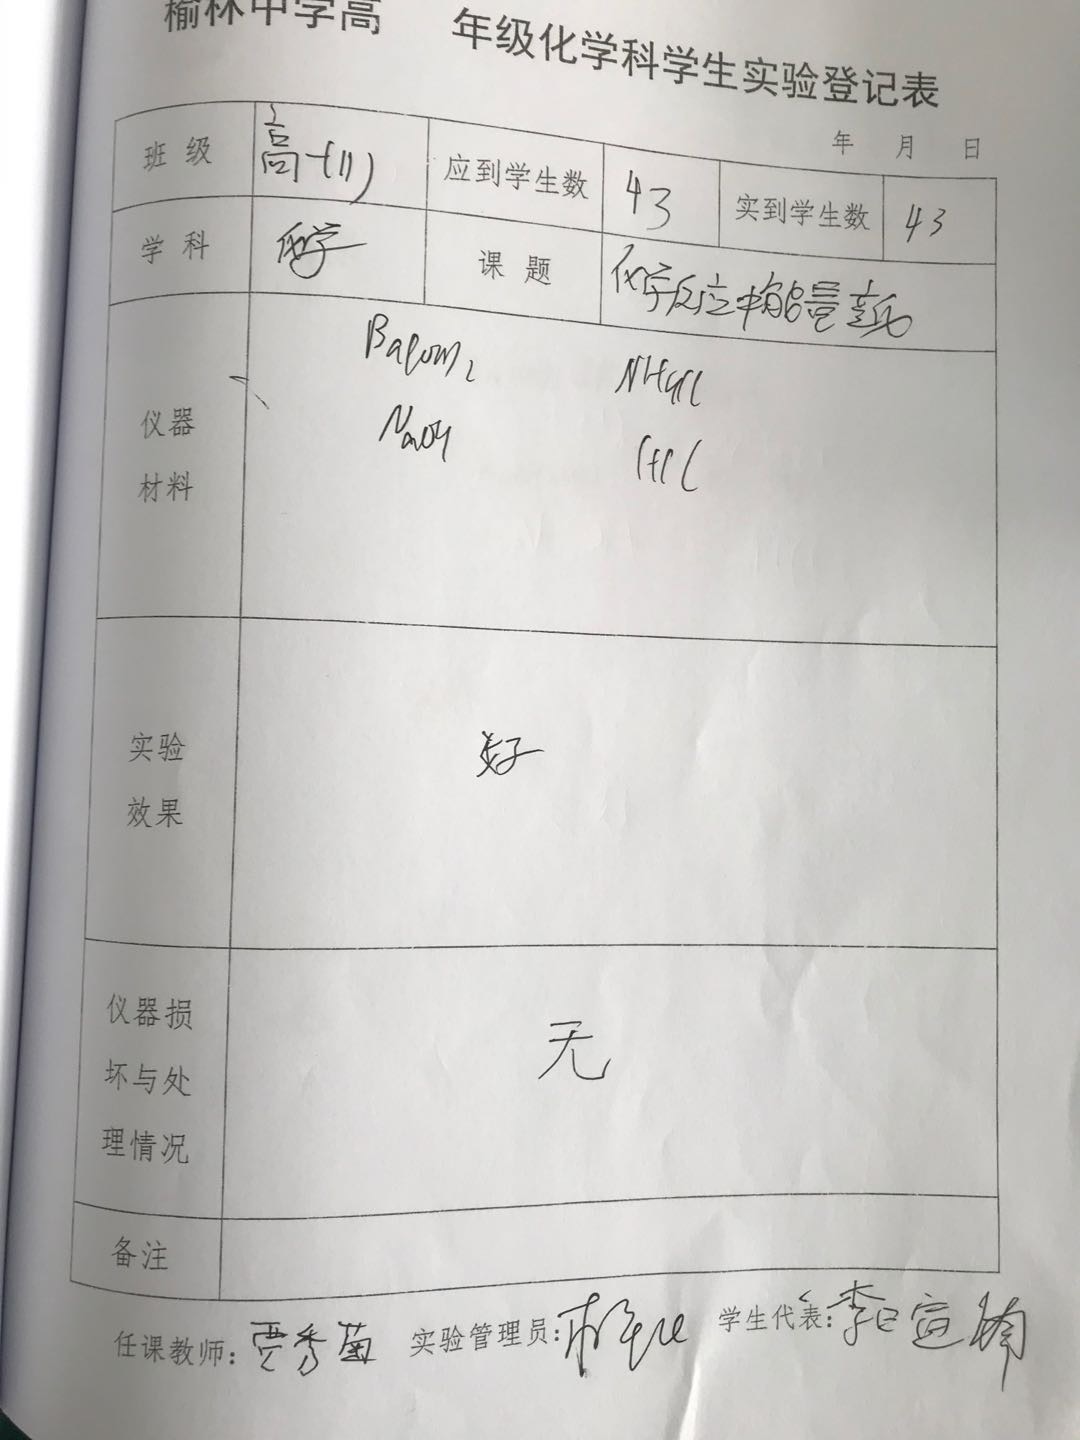 榆林中学高 年级化学科学生实验登记表
年 月 日
班级 高一(11) 应到学生数 43 实到学生数 43
学科 化学 课题 化学反应中能量变化
仪器材料 Ba(OH)2 NH4Cl
NaOH HCl
实验效果 好
仪器损坏与处理情况 无
备注
任课教师：贾秀菊 实验管理员： 学生代表：李